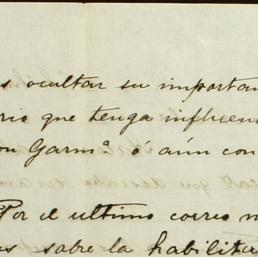 s ocultar su importan
rio que tenga influen
on Garm.ª ó aún con
Por el ultimo correo
as sobre la habilita